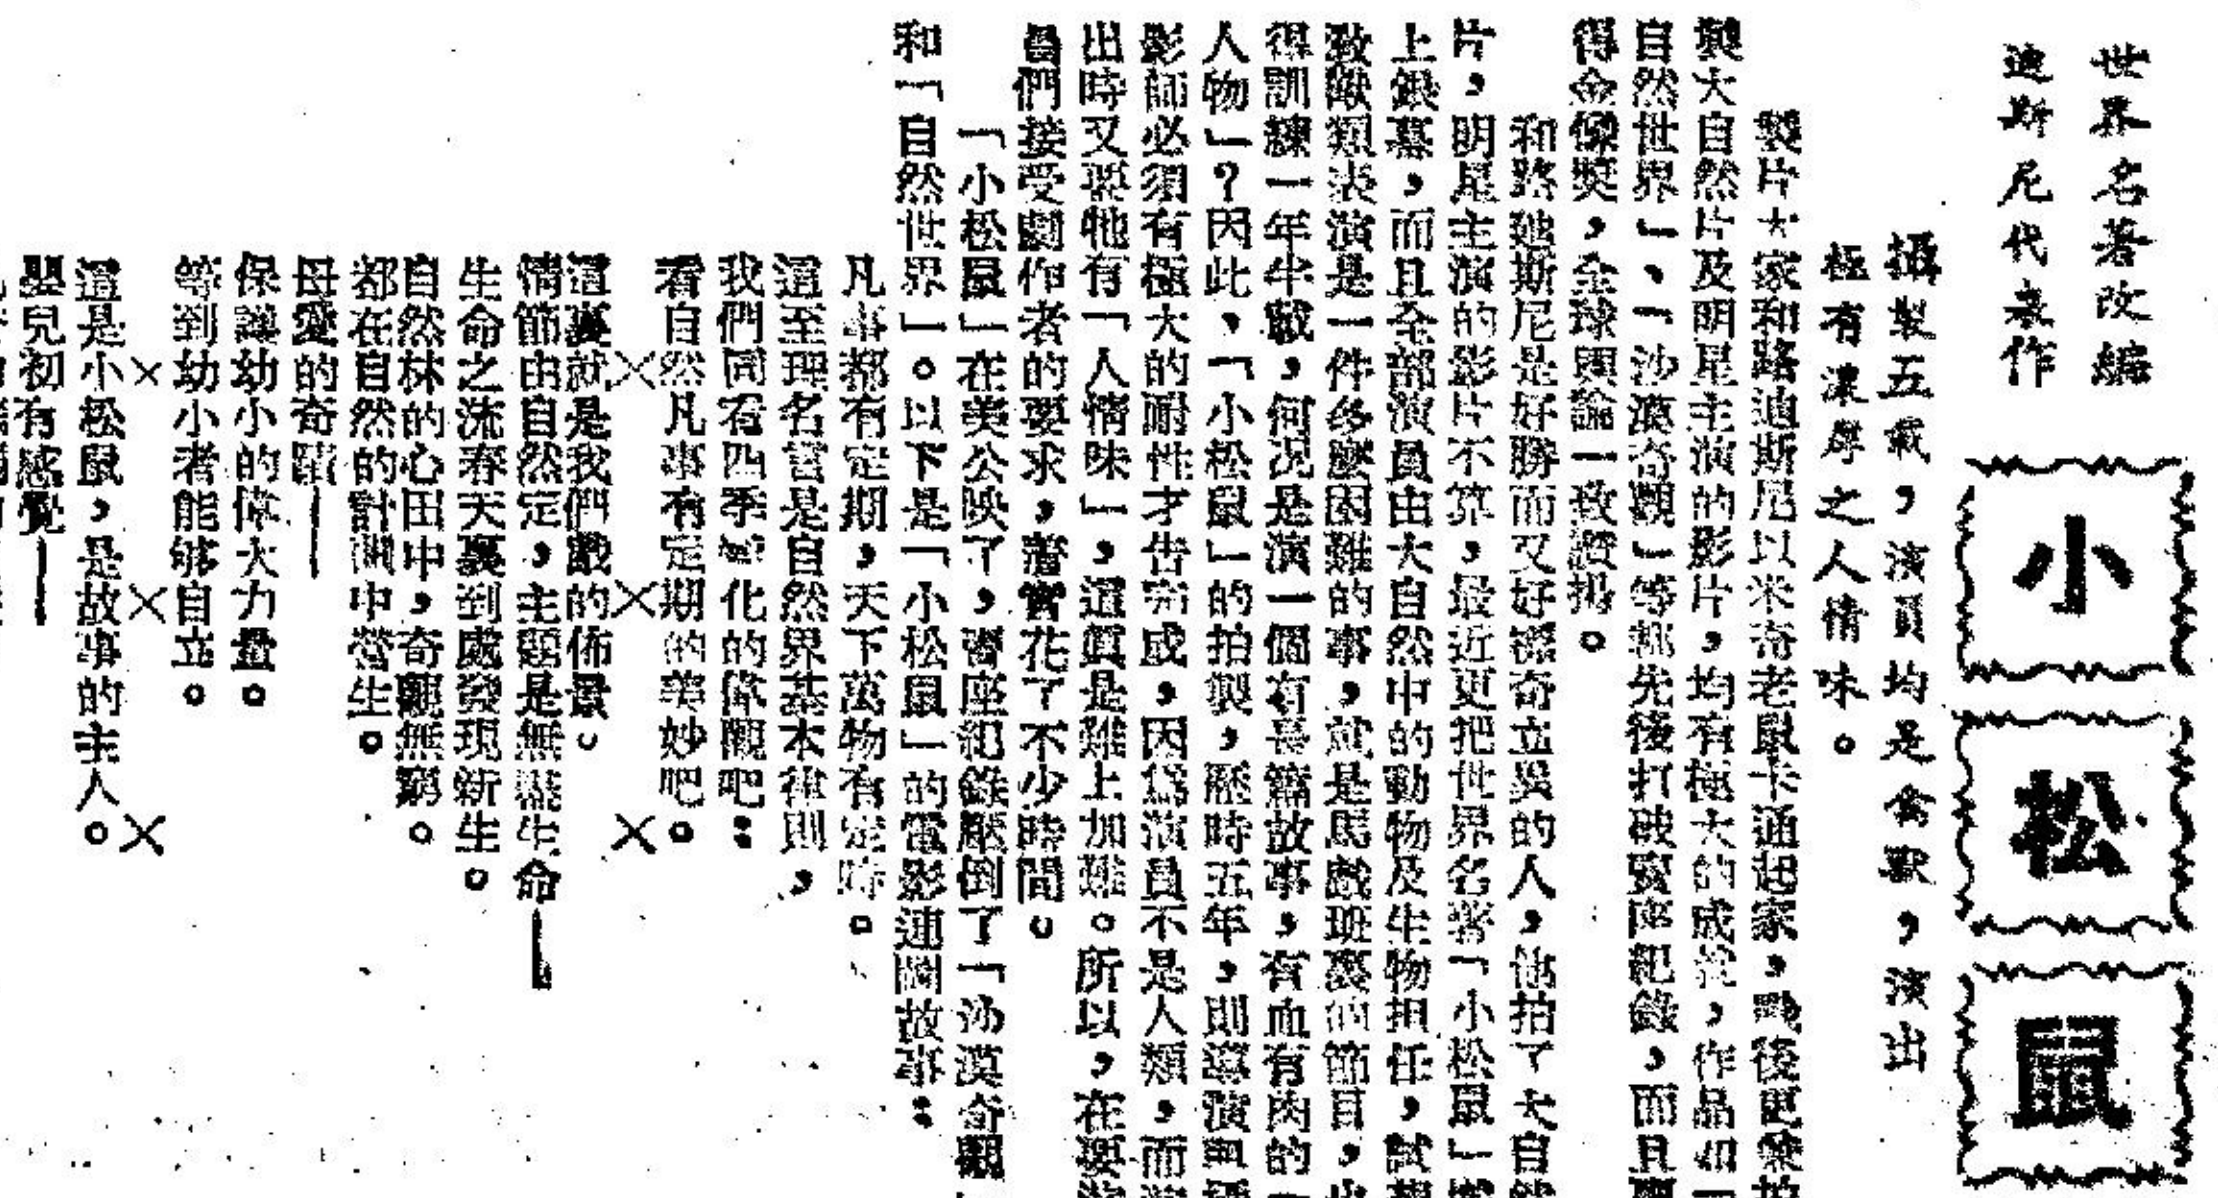 世界名著改編
迪斯尼代表作
小松鼠
攝製五載，演員均是禽獸，演出
極有濃厚之人情味。
製片大家和路迪斯尼以米奇老鼠卡通起家，戰後更兼拍
製大自然片及明星主演的影片，均有極大的成就，作品如「
自然世界」、「沙漠奇觀」等都先後打破賣座紀錄，而且
得金像獎，全球輿論一致讚揚。
和路迪斯尼是好勝而又好標奇立異的人，他拍了大自然
片，明星主演的影片不算，最近更把世界名著「小松鼠」搬
上銀幕，而且全部演員由大自然中的動物及生物担任，試想
教獸類表演是一件多麼困難的事，就是馬戲班裏的節目，也
得訓練一年半載，何况是演一個有長篇故事，有血有肉的「
人物」？因此，「小松鼠」的拍製，歷時五年，則導演與攝
影師必須有極大的耐性才告完成，因爲演員不是人類，而演
出時又要牠有「人情味」，這眞是難上加難。所以，在要演
員們接受劇作者的要求，着實花了不少時間。
「小松鼠」在美公映了，賣座紀錄壓倒了「沙漠奇觀」
和「自然世界」。以下是「小松鼠」的電影連圖故事：
凡事都有定期，天下萬物有定時。
這至理名言是自然界基本律則，
我們同看四季變化的偉觀吧：
看自然凡事有定期的美妙吧。
×　×　×
這裏就是我們戲的佈景。
情節由自然定，主題是無盡生命——
生命之流春天裏到處發現新生。
自然林的心田中，奇觀無窮。
都在自然的計劃中營生。
母愛的奇蹟——
保護幼小的偉大力量。
等到幼小者能够自立。
×　×　×
這是小松鼠，是故事的主人。
嬰兒初有感覺——